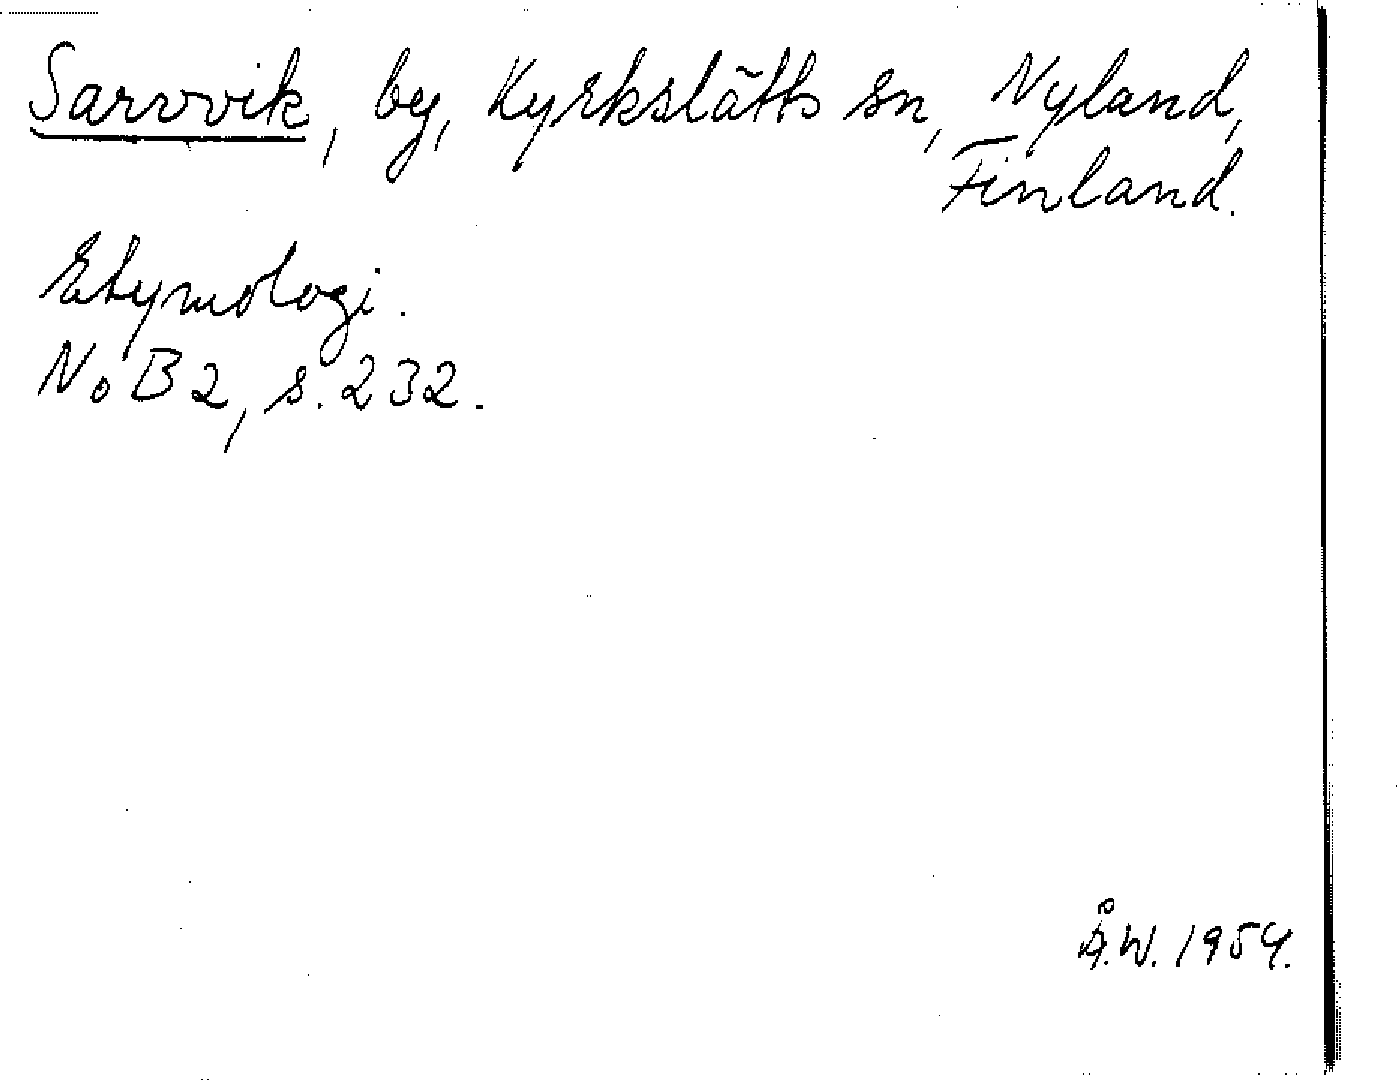 Sarvvik, by, Kyrkslätts sn, Nyland,
Finland.
Etymologi.
NoB 2, s. 232.
Å.W. 1954.